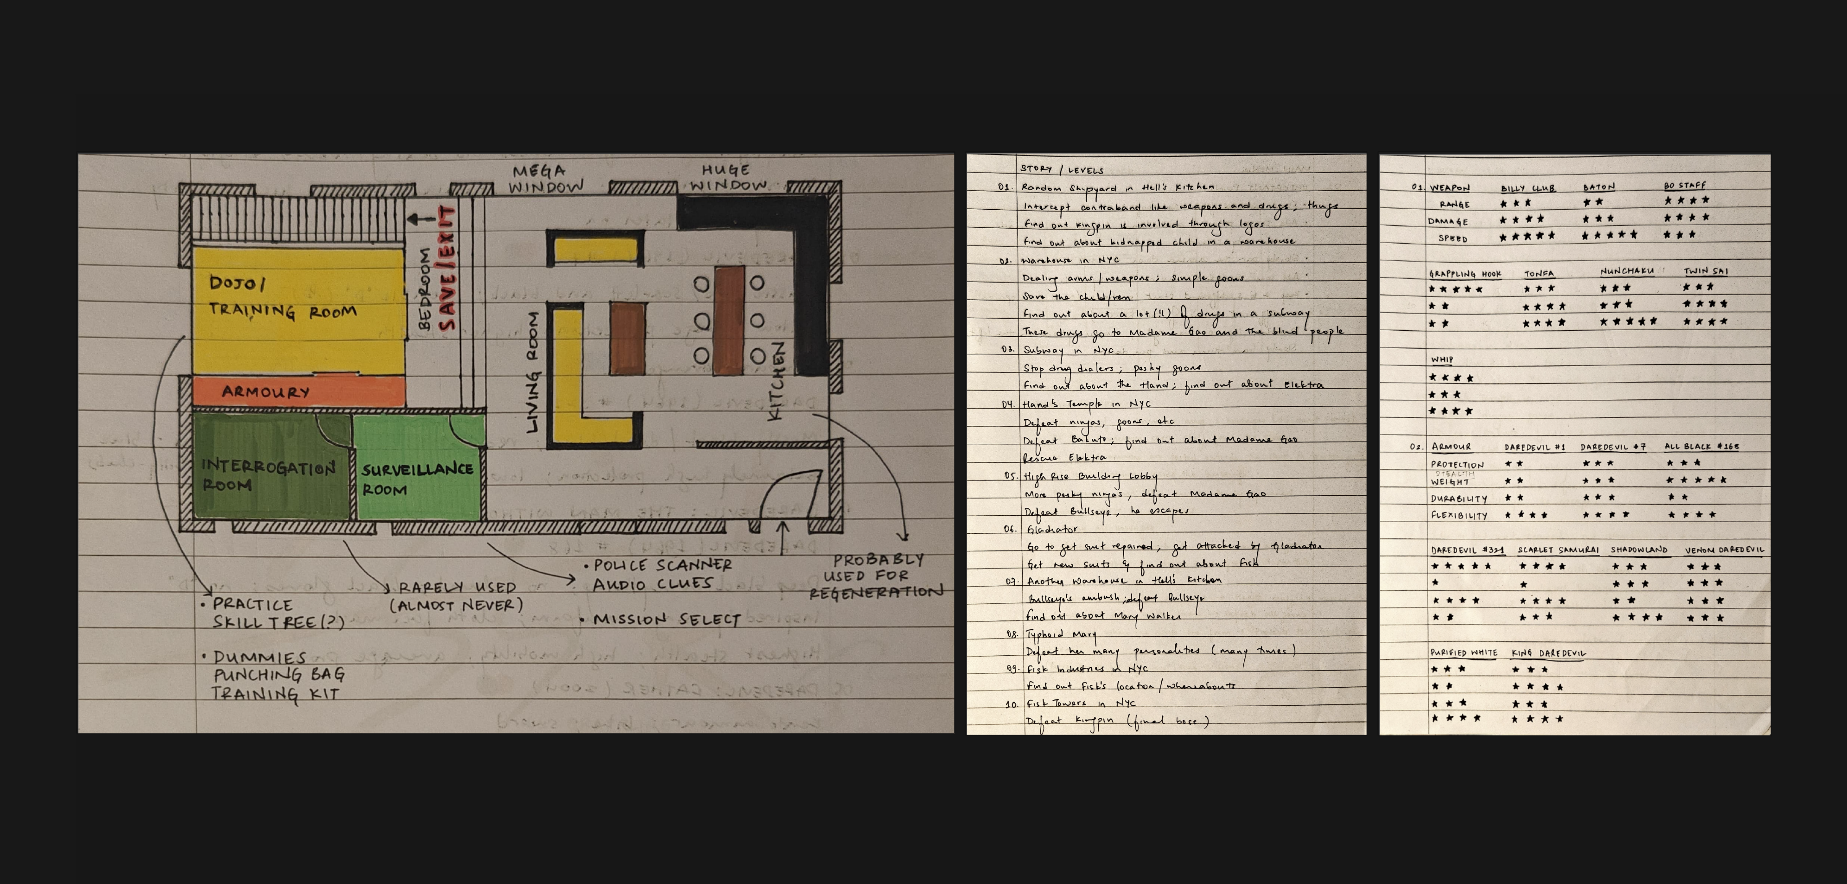 MEGA
WINDOW
HUGE
WINDOW
DOJO/
TRAINING ROOM
BEDROOM
SAVE/EXIT
ARMOURY
INTERROGATION
ROOM
SURVEILLANCE
ROOM
LIVING ROOM
KITCHEN
• PRACTICE
SKILL TREE(?)
• DUMMIES
PUNCHING BAG
TRAINING KIT
RARELY USED
(ALMOST NEVER)
• POLICE SCANNER
AUDIO CLUES
• MISSION SELECT
PROBABLY
USED FOR
REGENERATION
STORY / LEVELS
01. Random Shipyard in Hell's Kitchen
Intercept contraband like weapons and drugs; thugs
Find out Kingpin is involved through logos
Find out about kidnapped child in a warehouse
02. Warehouse in NYC
Dealing arms/weapons; simple goons
Save the child/ren
Find out about a lot(!!) of drugs in a subway
These drugs go to Madame Gao and the blind people
03. Subway in NYC
Stop drug dealers; pesky goons
Find out about the Hand; find out about Elektra
04. Hand's Temple in NYC
Defeat ninjas, goons, etc
Defeat Bakuto; find out about Madame Gao
Rescue Elektra
05. High Rise Building Lobby
More pesky ninjas, defeat Madame Gao
Defeat Bullseye, he escapes
06. Gladiator
Go to get suit repaired, get attacked by Gladiator
Get new suits & find out about Fisk
07. Another Warehouse in Hell's Kitchen
Bullseye's ambush; defeat Bullseye
Find out about Mary Walker
08. Typhoid Mary
Defeat her many personalities (many times)
09. Fisk Industries in NYC
Find out Fisk's location/whereabouts
10. Fisk Towers in NYC
Defeat Kingpin (final boss)
01. WEAPON BILLY CLUB BATON BO STAFF
RANGE ★★★ ★★ ★★★★
DAMAGE ★★★★ ★★★ ★★★★
SPEED ★★★★★ ★★★★★ ★★★
GRAPPLING HOOK TONFA NUNCHAKU TWIN SAI
★★★★★ ★★★ ★★★ ★★★
★★ ★★★★ ★★★ ★★★★
★★ ★★★★ ★★★★★ ★★★★
WHIP
★★★★
★★★
★★★★
02. ARMOUR DAREDEVIL #1 DAREDEVIL #7 ALL BLACK #168
PROTECTION ★★ ★★★ ★★★
WEIGHT ★★ ★★★ ★★★★★
DURABILITY ★★ ★★★ ★★
FLEXIBILITY ★★★★ ★★★★ ★★★★
DAREDEVIL #321 SCARLET SAMURAI SHADOWLAND VENOM DAREDEVIL
★★★★★ ★★★★ ★★★ ★★★
★ ★ ★★★ ★★★
★★★★ ★★★★ ★★ ★★★
★★ ★★★ ★★★★ ★★★
PURIFIED WHITE KING DAREDEVIL
★★★ ★★★
★★ ★★★★
★★★ ★★★
★★★★ ★★★★